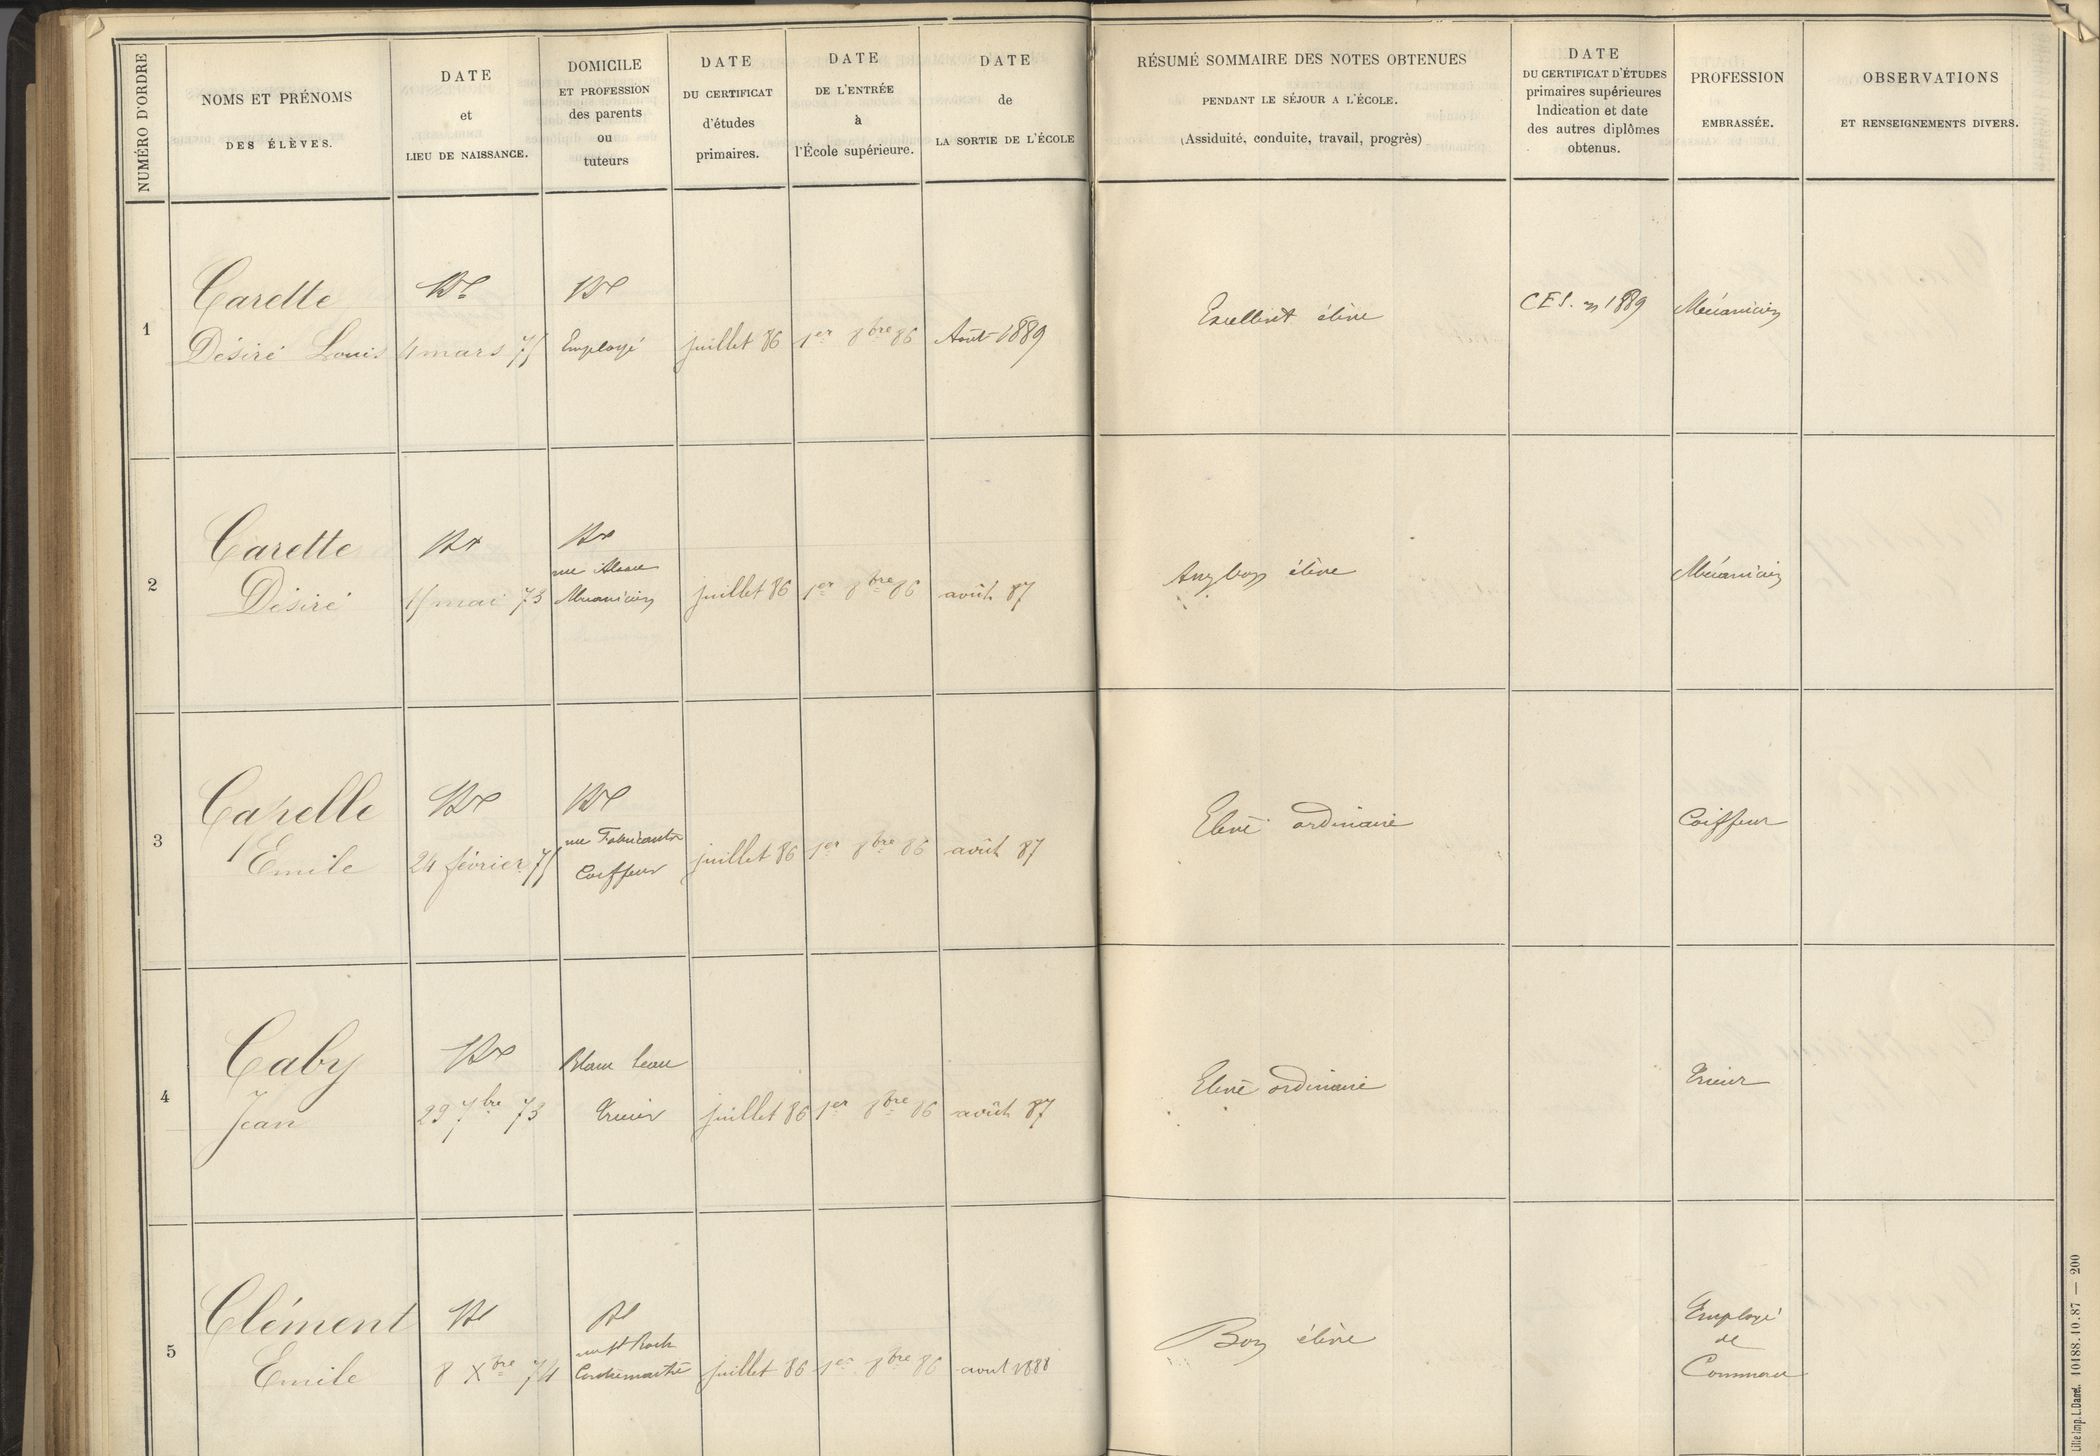 NUMÉRO D'ORDRE
NOMS ET PRÉNOMS
DES ÉLÈVES.
DATE
et
LIEU DE NAISSANCE.
DOMICILE
ET PROFESSION
des parents
ou
tuteurs
DATE
DU CERTIFICAT
d'études
primaires.
DATE
DE L'ENTRÉE
à
l'École supérieure.
DATE
de
LA SORTIE DE L'ÉCOLE
RÉSUMÉ SOMMAIRE DES NOTES OBTENUES
PENDANT LE SÉJOUR A L'ÉCOLE.
(Assiduité, conduite, travail, progrès)
DATE
DU CERTIFICAT D'ÉTUDES
primaires supérieures
Indication et date
des autres diplômes
obtenus.
PROFESSION
EMBRASSÉE.
OBSERVATIONS
ET RENSEIGNEMENTS DIVERS.
1
Carette
Désiré Louis
Rx
4 mars 75
Rx
Employé
juillet 86
1er 8bre 86
Août 1889
Excellent élève
C E S. en 1889
Mécanicien
2
Carette
Désiré
Rx
15 mai 73
Rx
rue Alsace
Mécanicien
juillet 86
1er 8bre 86
août 87
Assez bon élève
Mécanicien
3
Capelle
Emile
Rx
24 février 75
Rx
rue Fabricants
Coiffeur
juillet 86
1er 8bre 86
août 87
Elève ordinaire
Coiffeur
4
Caby
Jean
Rx
29 7bre 73
Blanc Seau
juillet 86
1er 8bre 86
août 87
Elève ordinaire
5
Clément
Emile
Rx
8 Xbre 74
Rx
rue St Roch
Contremaître
juillet 86
1er 8bre 86
aout 1888
Bon élève
Employé
de
Commerce
Lille Imp. L. Danel. 10188.10.87 — 200